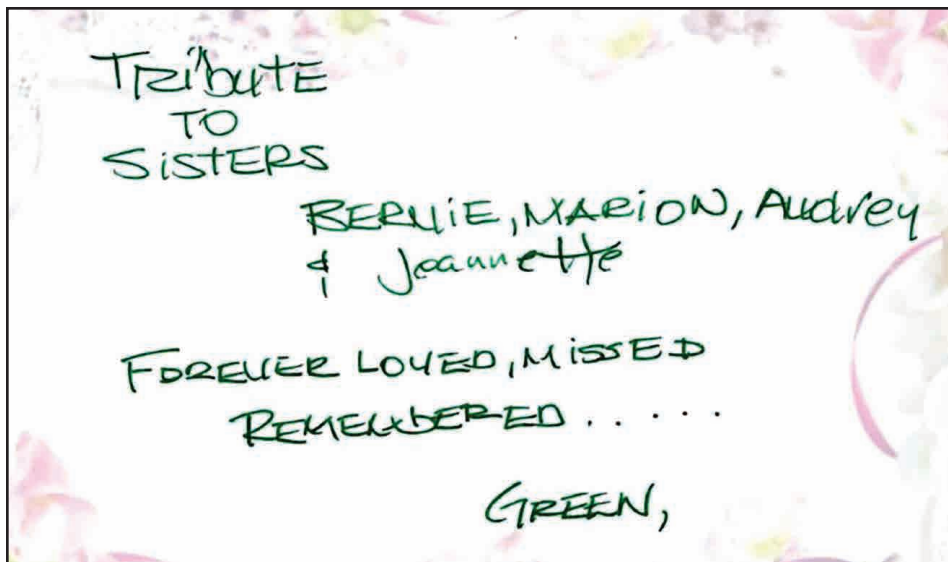 Tribute
TO
SiSTERS
BERNiE, MARiON, Audrey
& Jeannette
FOREVER LOVED, MiSSED
REMEMBERED . . . . .
GREEN,